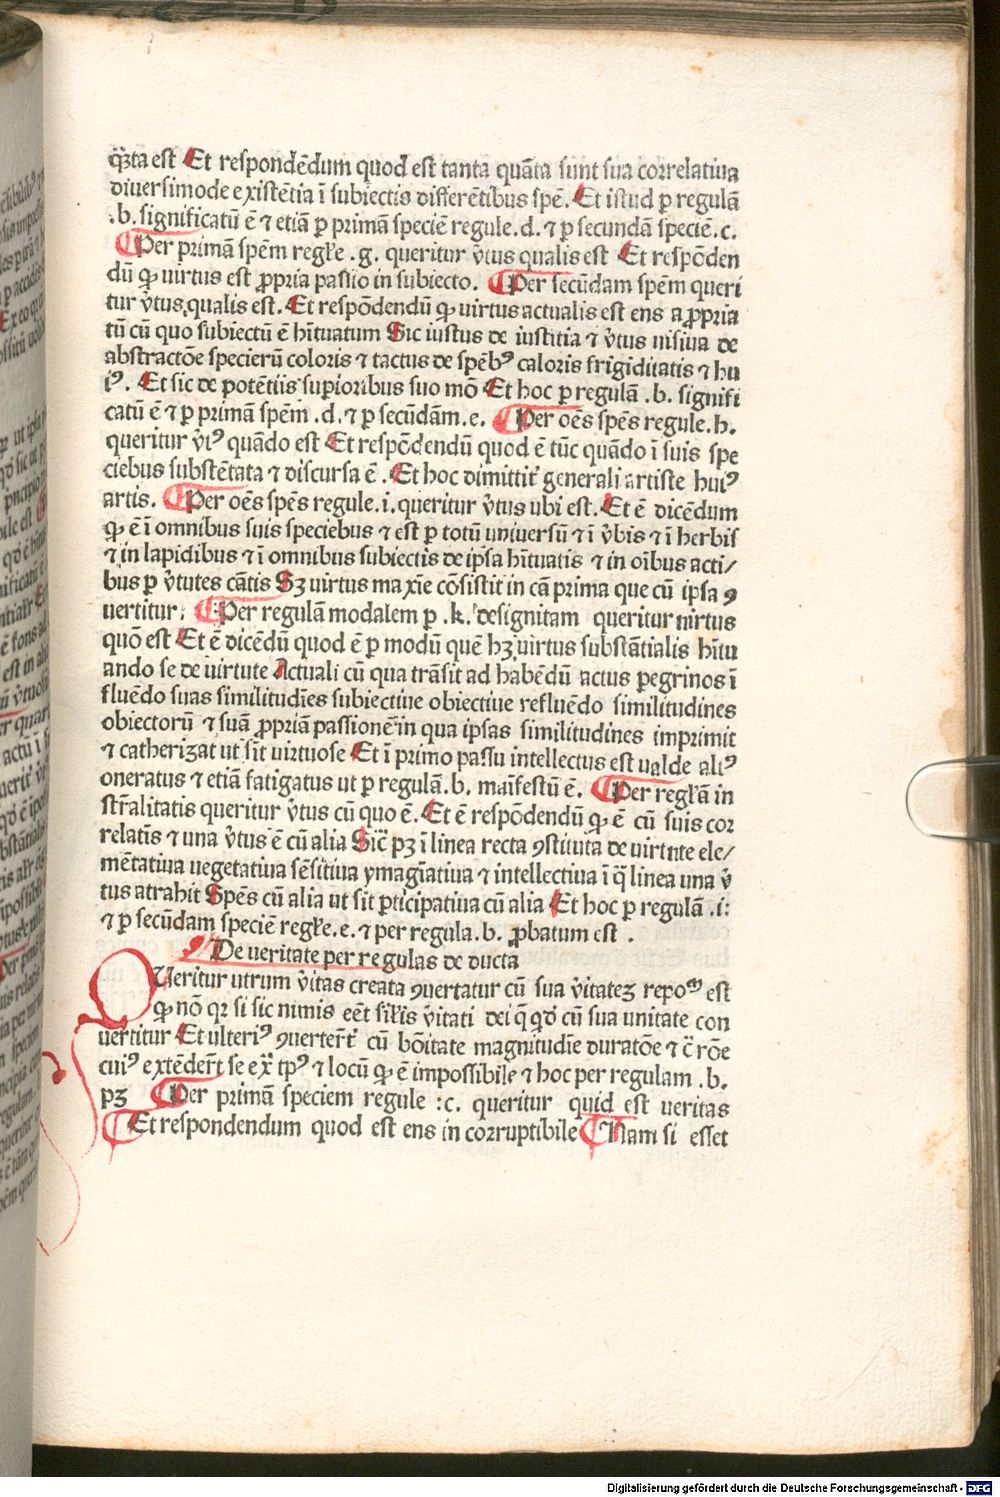 q̃ta est Et respondēdum quod est tanta quāta sunt sua correlatiua
diuersimode existētia ī subiectis differētibus spē. Et istud p̲ regulā
.b. significatū ē ⁊ etiā p̲ primā speciē regule .d. ⁊ p̲ secundā speciē .c.
¶Per primā spēm regl̄e .g. queritur v̄tus qualis est Et respōden
dū ꝙ virtus est ꝓpria passio in subiecto. ¶Per secūdam spēm queri
tur v̄tus qualis est. Et respōdendū ꝙ virtus actualis est ens a ꝓpria
tū cū quo subiectū ē hītuatum Sic iustus de iustitia ⁊ v̄tus uisiua de
abstractōe specierū coloris ⁊ tactus de spēbꝰ caloris frigiditatis ⁊ hu
iꝰ. Et sic de potētiis sup̲ioribus suo mō Et hoc p̲ regulā .b. signifi
catū ē ⁊ p̲ primā spēm .d. ⁊ p̲ secūdām .e. ¶Per oēs spēs regule .h.
queritur v̄tꝰ quādo est Et respōdendū quod ē tūc quādo ī suis spe
ciebus substētata ⁊ discursa ē. Et hoc dimittit̄ generali artiste huiꝰ
artis. ¶Per oēs spēs regule .i. queritur v̄tus ubi est. Et ē dicēdum
ꝙ ē ī omnibus suis speciebus ⁊ est p̲ totū uniuersū ⁊ ī v̄bis ⁊ ī herbis
⁊ in lapidibus ⁊ ī omnibus subiectis de ip̄sa hītuatis ⁊ in oībus acti/
bus p̲ v̄tutes cātis Sꝫ virtus maxīe cōsistit in cā prima que cū ipsa ꝯ
uertitur. ¶Per regulā modalem p̲ .k. designitam queritur uirtus
quō est Et ē dicēdū quod ē p̲ modū quē hꝫ uirtus substātialis hītu
ando se de uirtute Actuali cū qua trāsit ad habēdū actus p̲egrinos ī
fluēdo suas similitudīes subiectiue obiectiue refluēdo similitudines
obiectorū ⁊ suā ꝓpriā passionē in qua ipsas similitudines imprimit
⁊ catherizat ut sīt uirtuose Et ī primo passu intellectus est ualde aliꝰ
oneratus ⁊ etiā fatigatus ut p̲ regulā .b. maīfestū ē. ¶Per regl̄ā in
str̄alitatis queritur v̄tus cū quo ē. Et ē respōdendū ꝙ ē cū suis cor
relatis ⁊ una v̄tus ē cū alia Sic̄ pꝫ ī linea recta ꝯstituta de uirtute ele/
mētatiua uegetatiua sēsitiua ymagīatiua ⁊ intellectiua ī q̄ linea una v̄
tus atrahit Spēs cū alia ut sit p̲ticipatiua cū alia Et hoc p̲ regulā .i:
⁊ p̲ secūdam speciē regl̄e .e. ⁊ per regula .b. ꝓbatum est .
¶De veritate per regulas de ducta
QUeritur utrum v̄itas creata ꝯuertatur cū sua v̄itateꝫ repoᵐ est
ꝙ nō qr si sic nimis eēt sil̄is v̄itati dei q̄ qd̄ cū sua unitate con
uertitur Et ulteriꝰ ꝯuerter̄t cū bōitate magnitudīe duratōe ⁊ c̄ rōe
cuiꝰ extēder̄t se ex̄ tp̄ꝰ ⁊ locū ꝙ ē impossibile ⁊ hoc per regulam .b.
pꝫ ¶Per primā speciem regule :c. queritur quid est veritas
¶Et respondendum quod est ens in corruptibile ¶Nam si esset
Digitalisierung gefördert durch die Deutsche Forschungsgemeinschaft - DFG